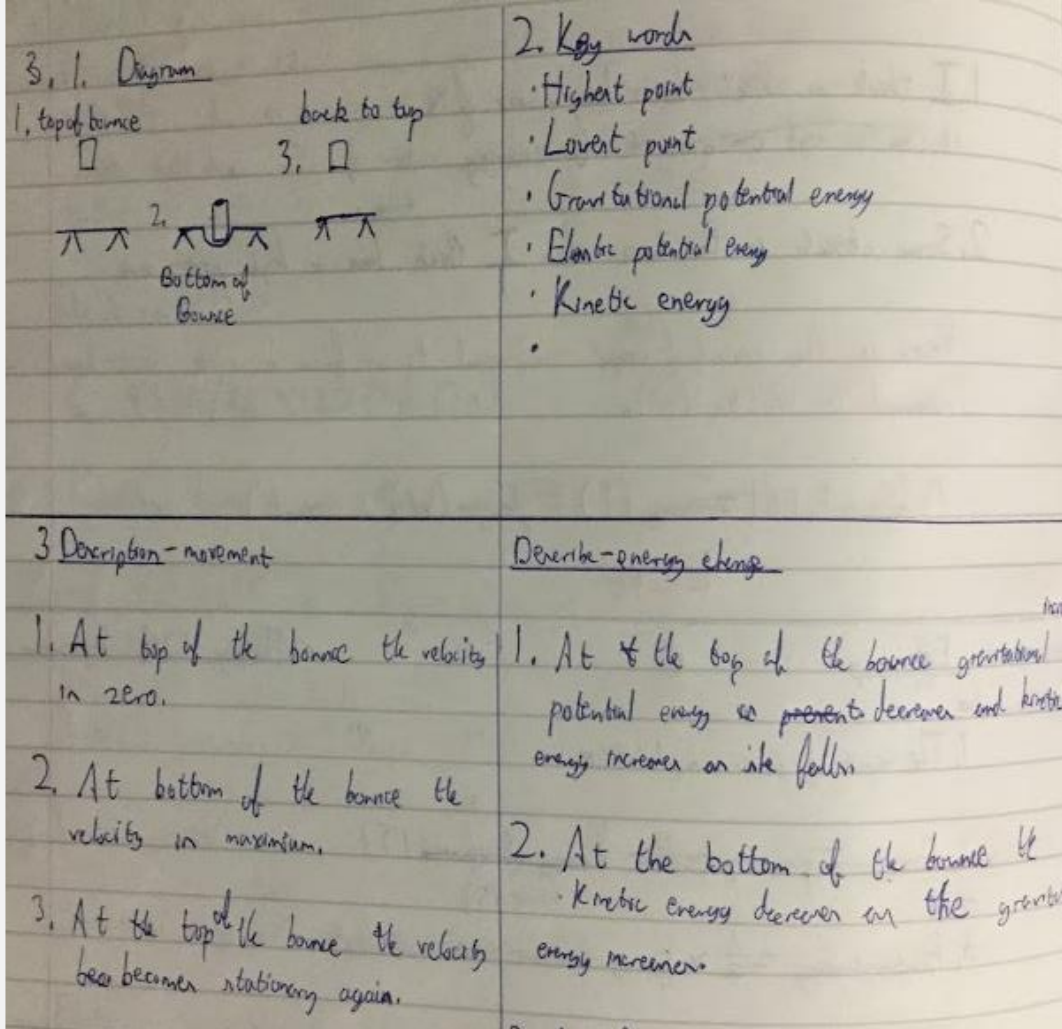 3. 1. Diagram
1. top of bounce
back to top
3.
2.
Bottom of
Bounce
2. Key words
· Highest point
· Lowest point
· Gravitational potential energy
· Elastic potential energy
· Kinetic energy
·
3 Description - movement
1. At top of the bounce the velocity
is zero.
2. At bottom of the bounce the
velocity is maximium.
3. At the top of the bounce the velocity
becomes stationary again.
Describe - energy change
1. At the top of the bounce gravitational
potential energy decreases and kinetic
energy increases as it falls.
2. At the bottom of the bounce the
· Kinetic energy decreases as the
energy increases.